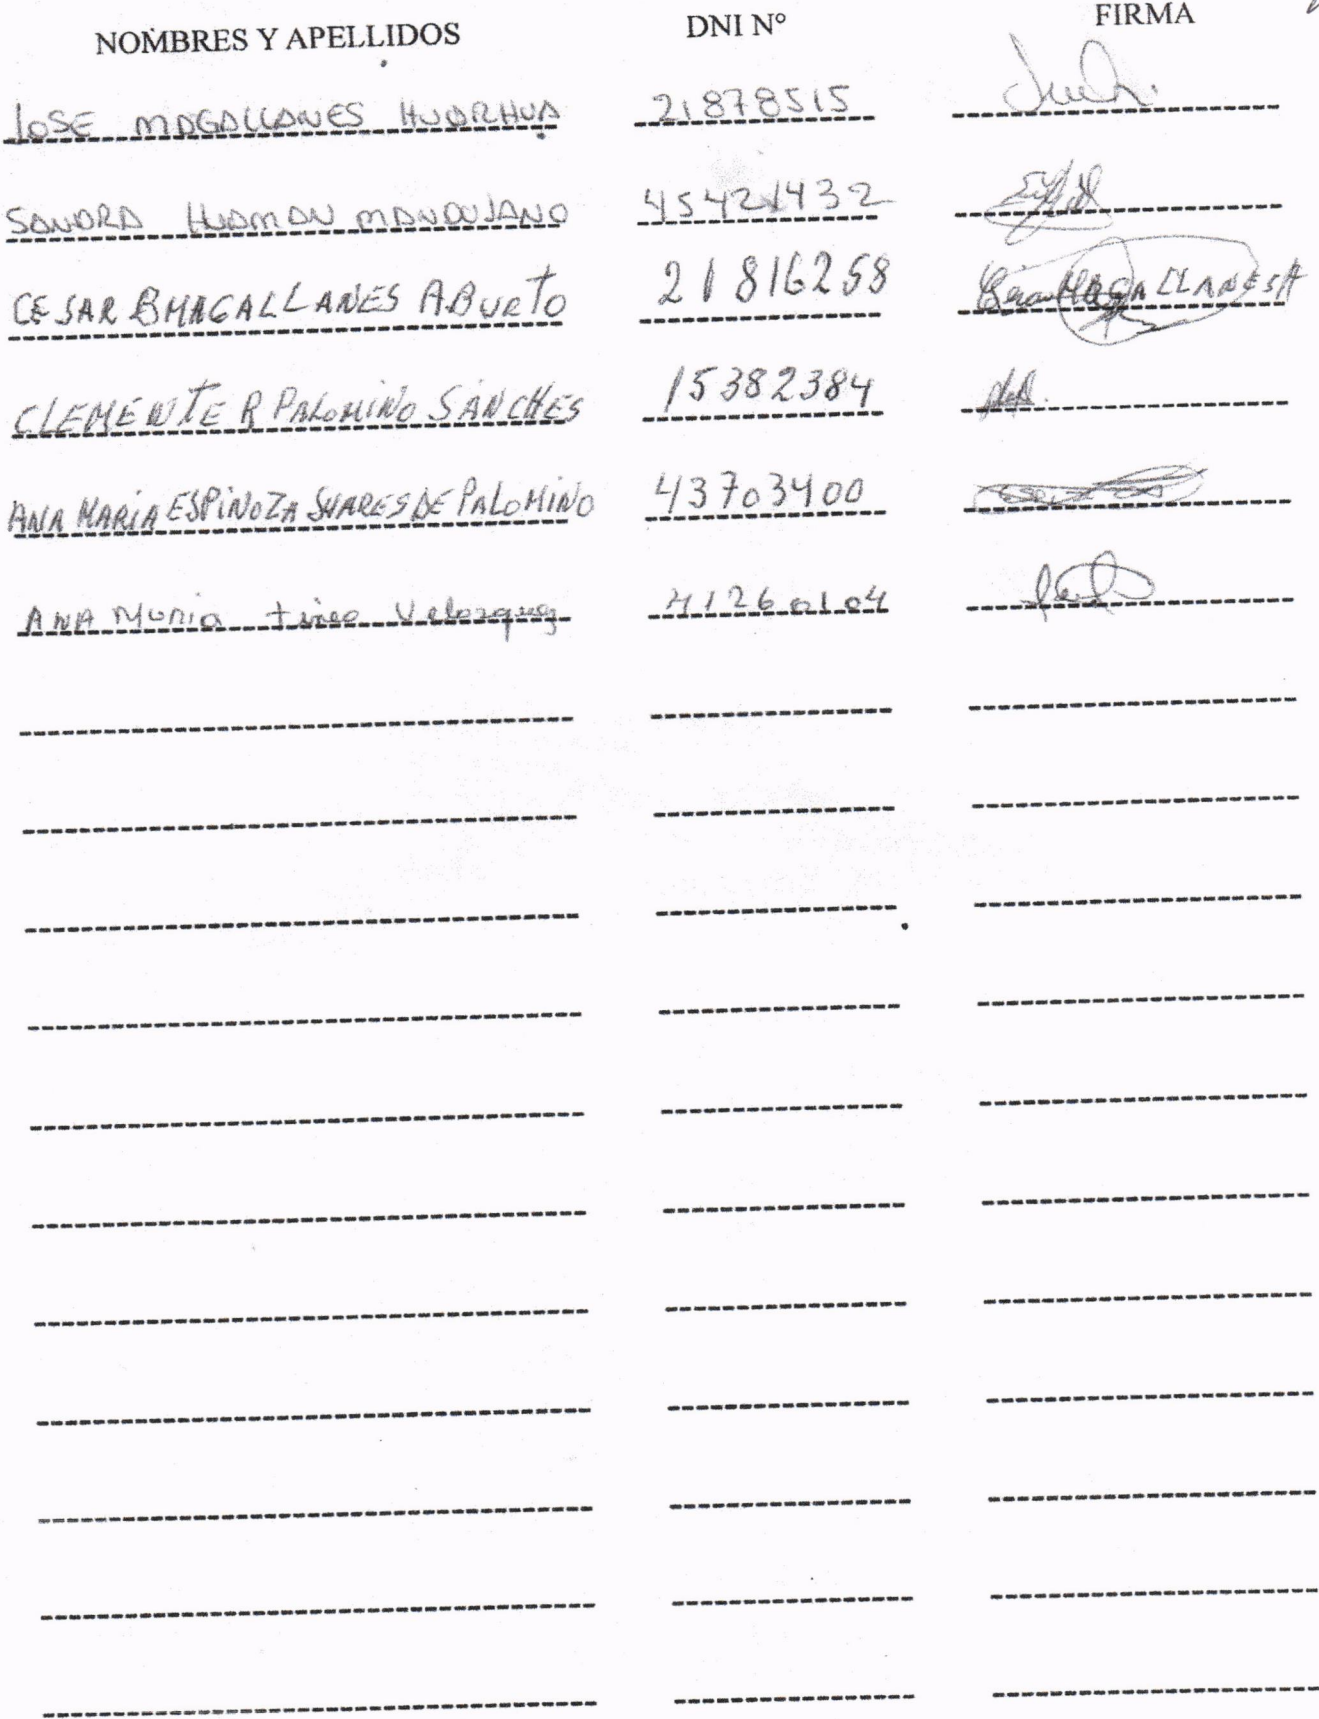 NOMBRES Y APELLIDOS DNI N° FIRMA
JOSE MAGALLANES HUARHUA 21878515
SANDRA HUAMAN MANDUJANO 45421432
CESAR B MAGALLANES ABURTO 21816258 MAGALLANES A
CLEMENTE R PALOMINO SANCHES 15382384
ANA MARÍA ESPINOZA SUARES DE PALOMINO 43703400
ANA Maria tineo Velazquez 41260104